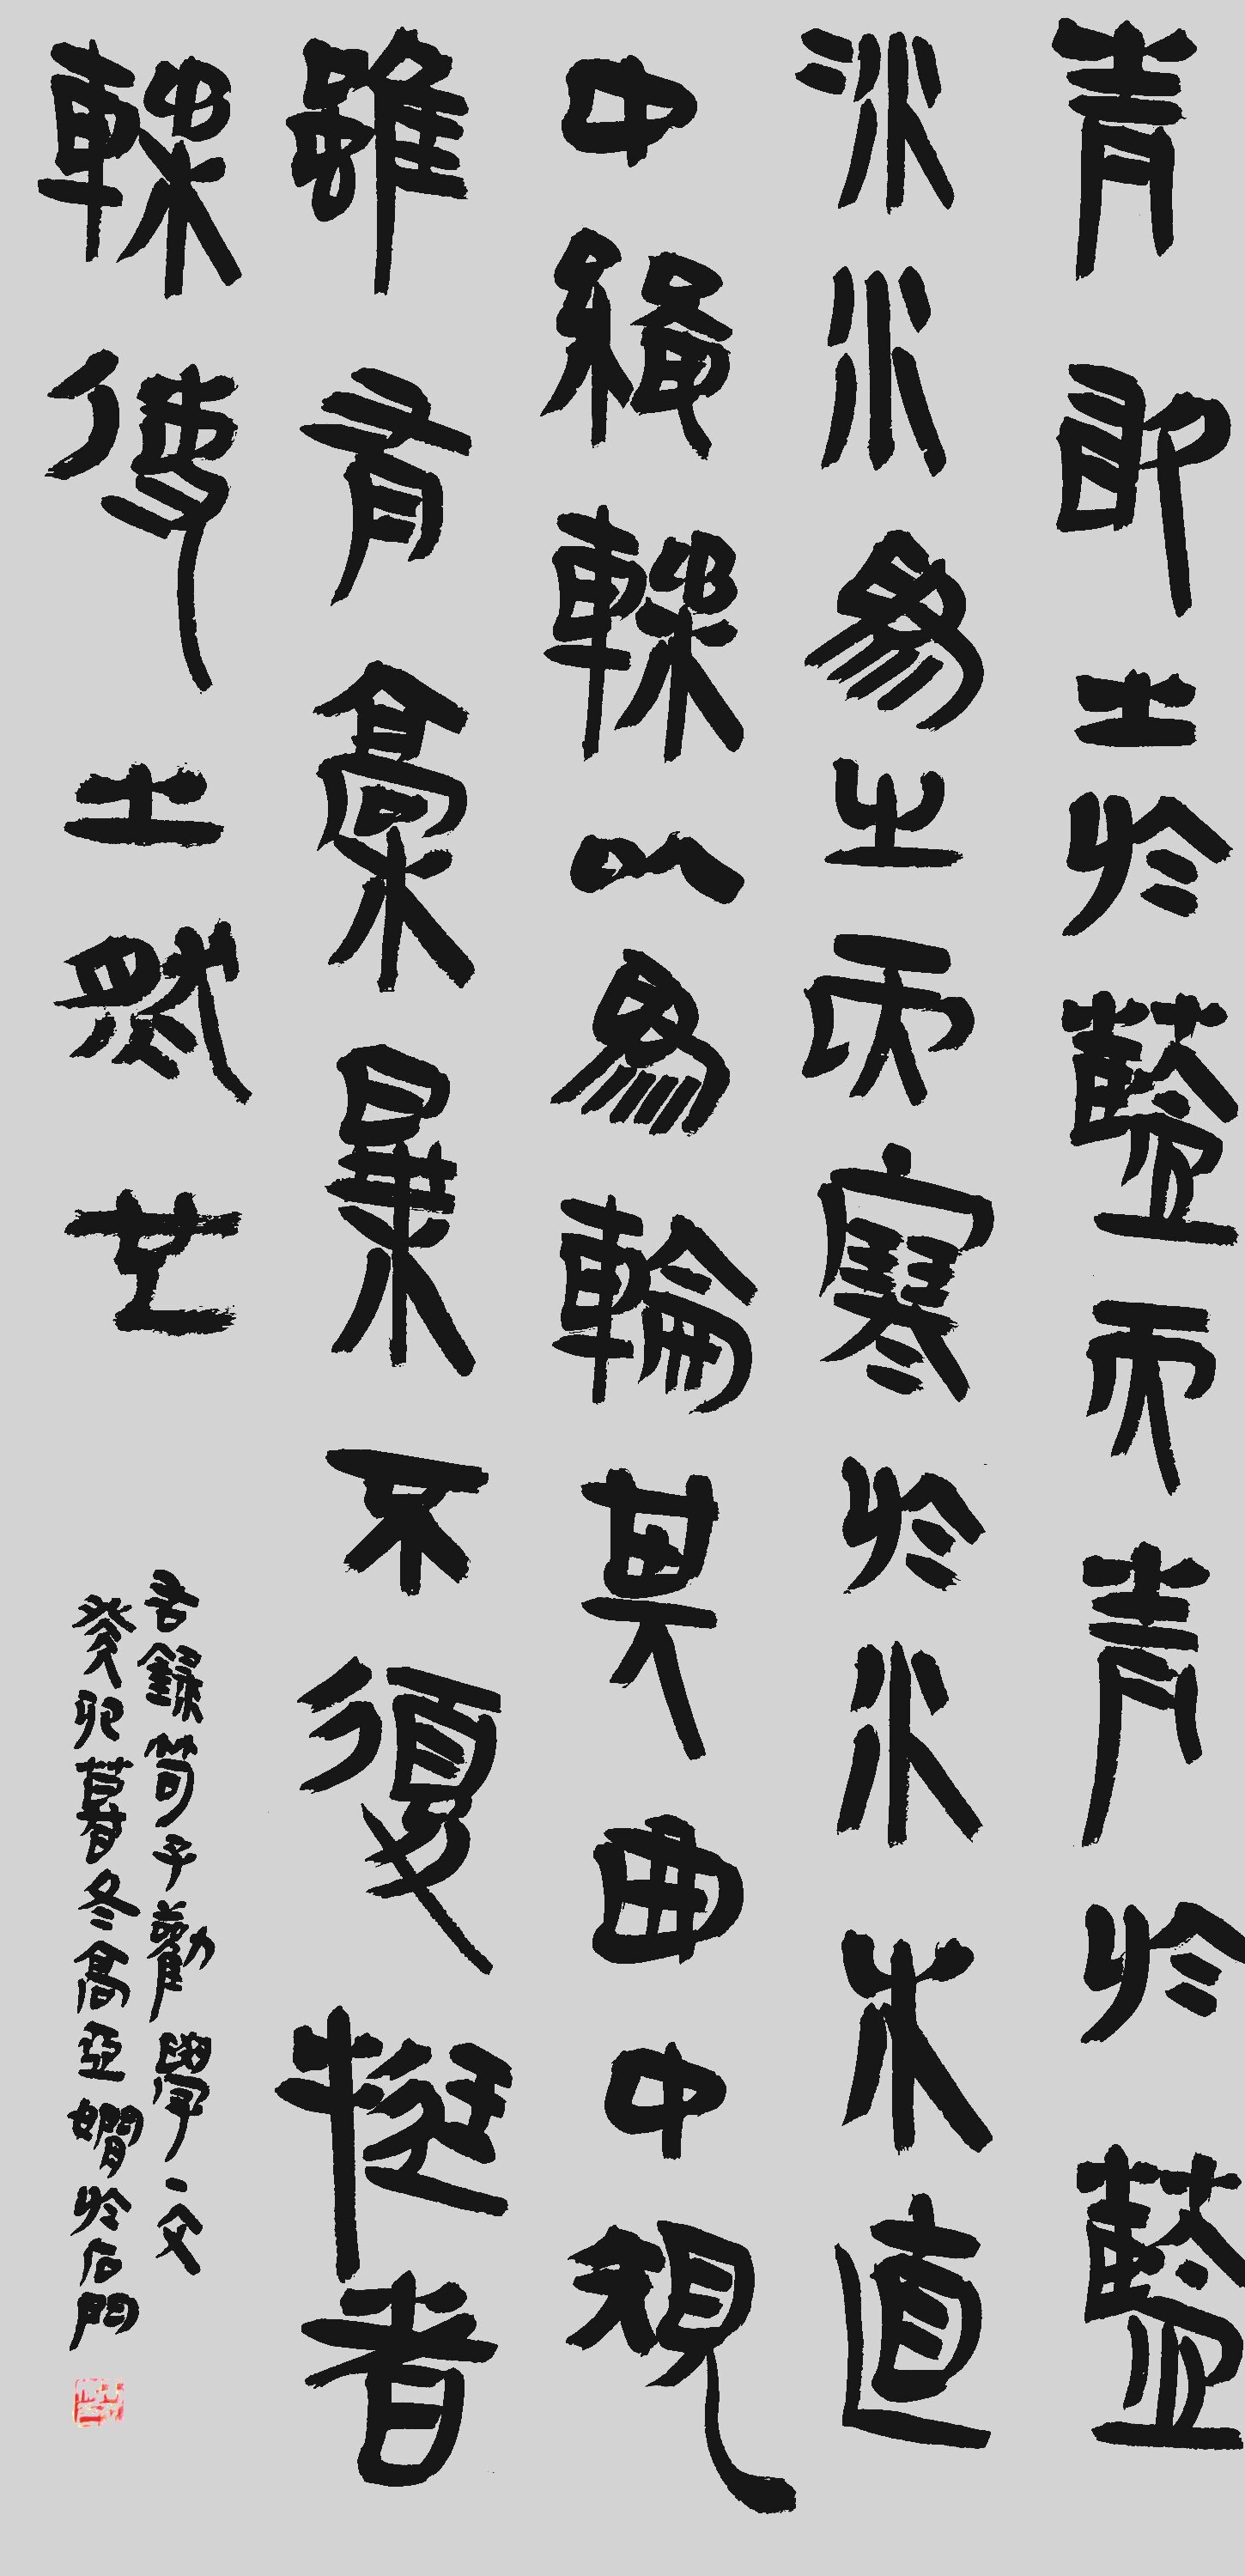 青取之於藍而青於藍
冰水為之而寒於水木直
中繩輮以為輪其曲中規
雖有槀暴不復挺者
輮使之然也
右錄荀子勸學一文
癸卯暮冬高亞嫺於石門